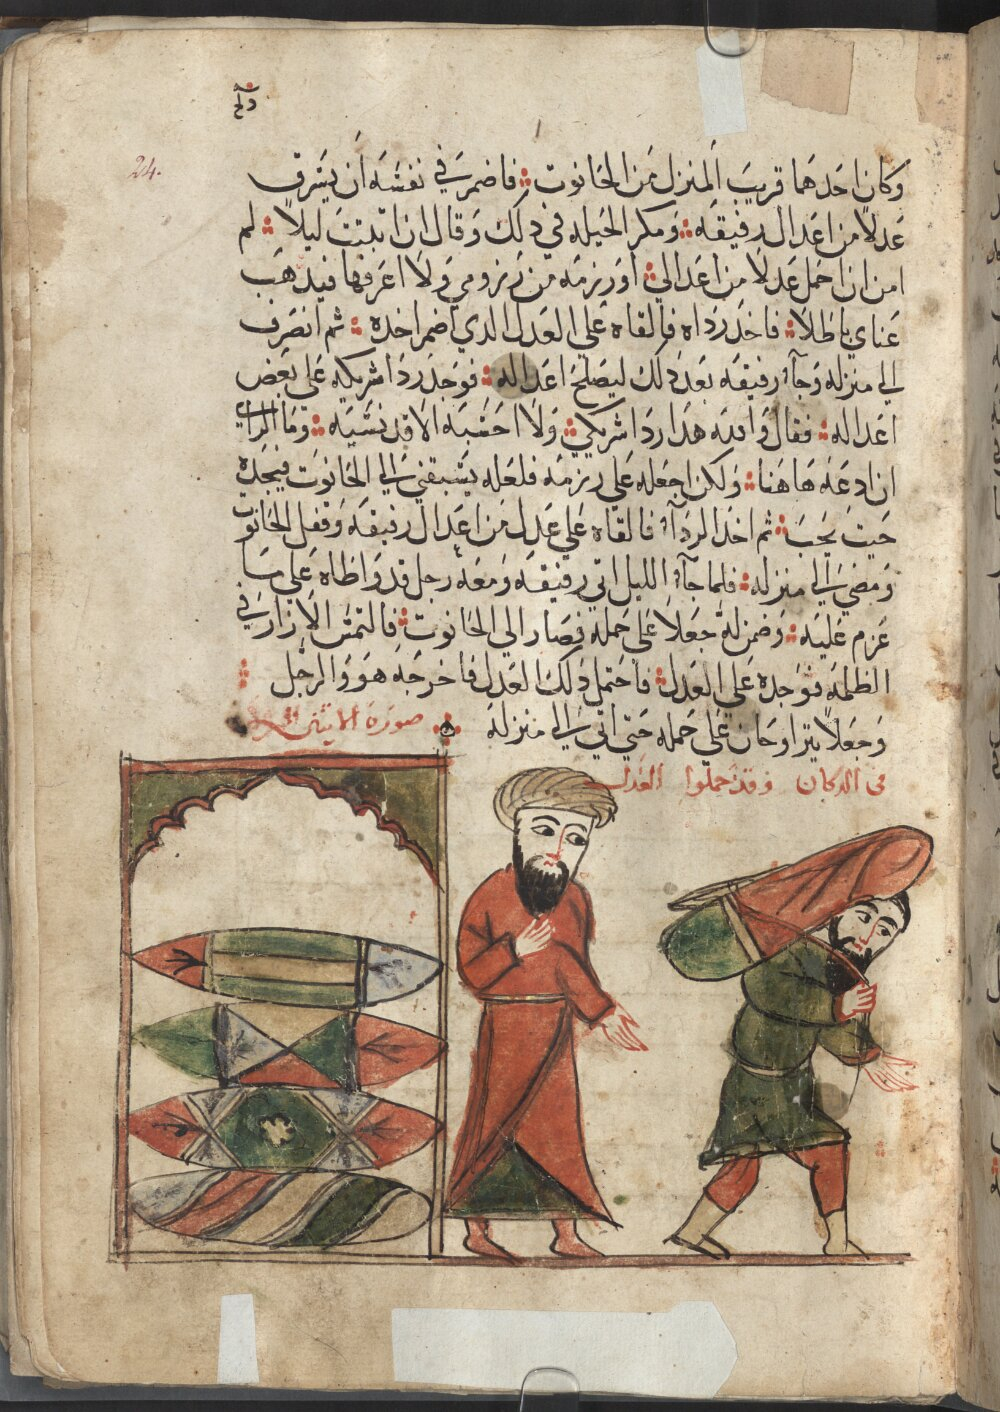 24.
وكان احدهما قريب المنزل من الحانوت فاضمر في نفسه ان يسرق
عدلا من اعدال رفيقه ومكر الحيله في ذلك وقال ان اتيت ليلا لم
امن ان احمل عدلا من اعدالي او رزمه من رزومي ولا اعرفها فيذهب
عناي باطلا فاخذ رداه فالقاه علي العدل الذي اضمر اخذه ثم انصرف
الي منزله وجآء رفيقه بعد ذلك ليصلح اعداله فوجد ردا شريكه على بعض
اعداله فقال والله هدا ردا شريكي ولا احسبه الا قد نسيه وما الراي
ان ادعه هاهنا ولكن اجعله علي رزمه فلعله يسبقني الي الحانوت فيجده
حيت يحب ثم اخد الردآء فالقاه علي عدل من اعدال رفيقه وقفل الحانوت
ومضي الي منزله فلما جآء الليل اتي رفيقه ومعه رجل قد واطاه علي ما
عزم عليه وضمن له جعلا على حمله فصار الي الحانوت فالتمس الازار في
الظلمه فوجده على العدل فاحتمل ذلك العدل فاخرجه هو والرجل
وجعلا يتراوحان علي حمله حتي اتي الي منزله
صورة الاثنين
في الدكان وقد حملوا العدل